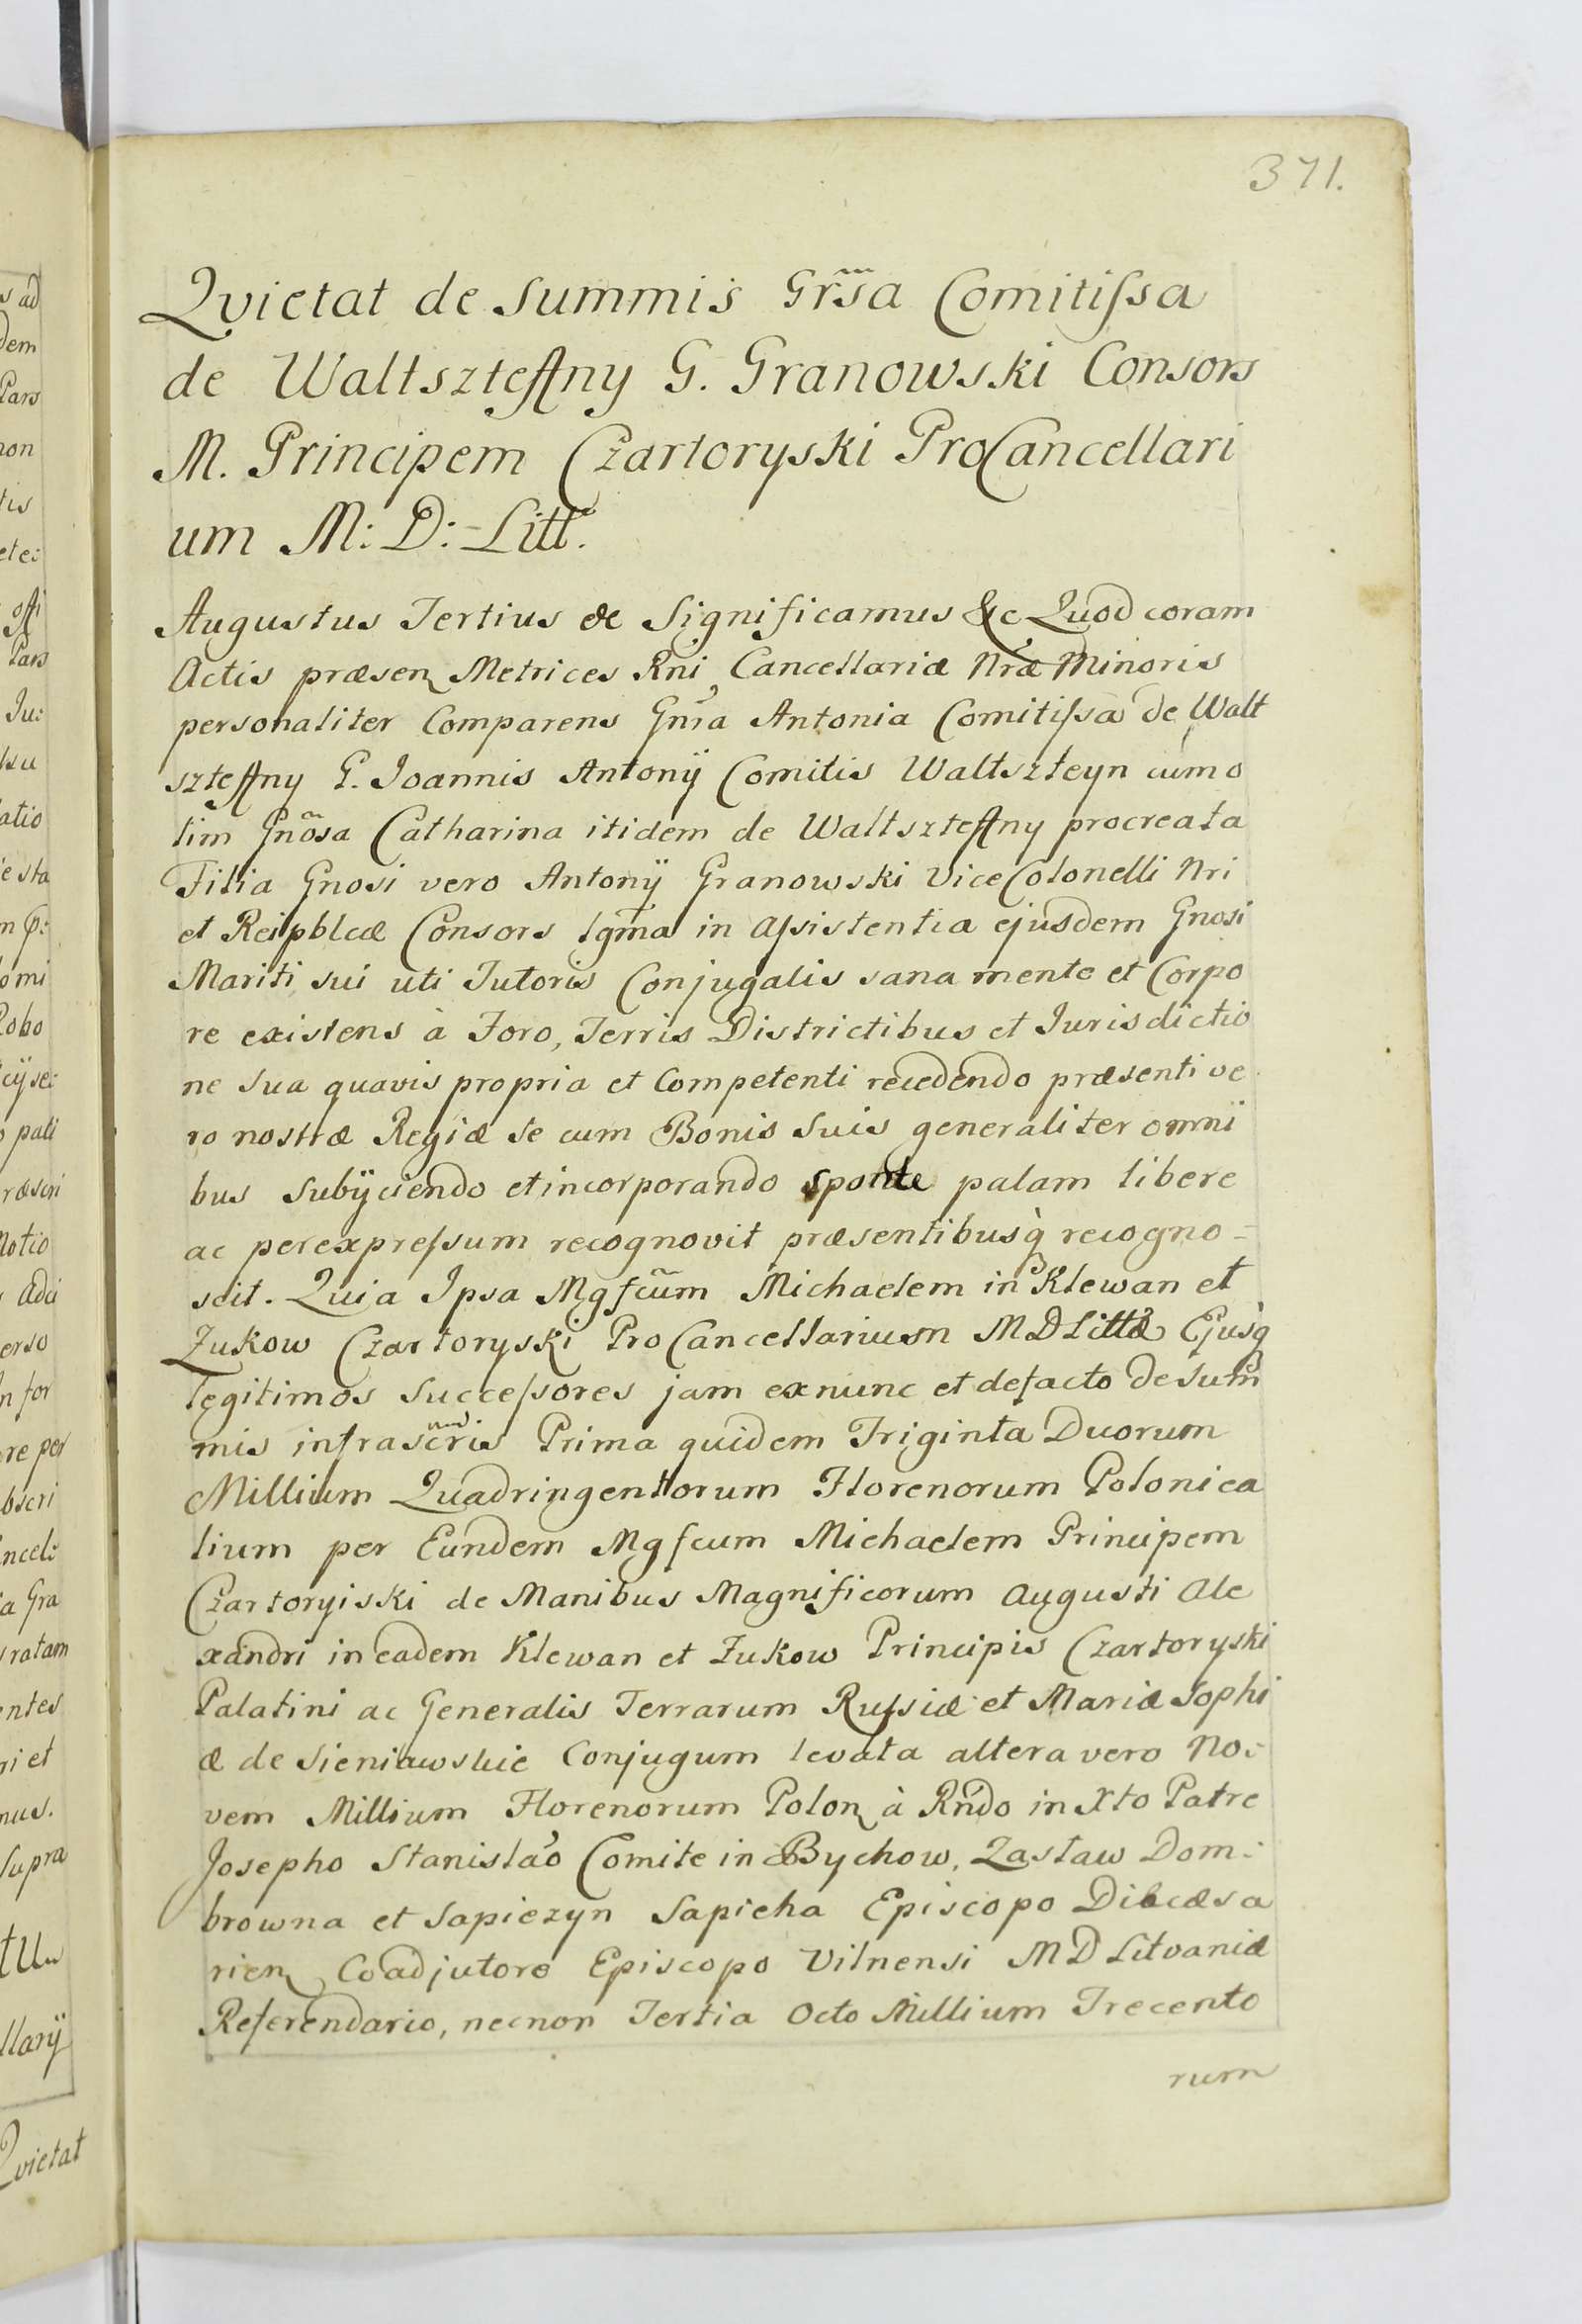 371.
Qvietat de Summis Grs̃a Comitissa
de Waltszteyny G. Granowski Consors
M. Principem Czartoryski ProCancellari
um M: D: Litt.
Augustus Tertius &c Significamus &c Quod coram
Actis præsen Metrices Rni Cancellariæ Nræ Minoris
personaliter Comparens Gnsa Antonia Comitissa de Walt
szteyny G. Joannis Antonij Comitis Waltszteyn cum o
lim Gnosa Catharina itidem de Waltszteyny procreata
Filia Gnosi vero Antonij Granowski ViceColonelli Nri
et Reipblcæ Consors lgma in assistentia ejusdem Gnosi
Mariti sui uti Tutoris Conjugalis sana mente et Corpo
re existens à Foro, Terris Districtibus et Jurisdictio
ne sua quavis propria et Competenti recedendo præsenti ve
ro nostræ Regiæ se cum Bonis Suis generaliter omni
bus subijciendo et incorporando sponte palam libere
ac per expressum recognovit præsentibusq̀ recogno=
scit. Quia Ipsa Mgfcũm Michaelem in Klewan et
Zukow Czartoryski ProCancellarium MDLittæ Ejusq̀
legitimos Successores jam ex nunc et defacto de Sum
mis infrascris Prima quidem Triginta Duorum
Millium Quadringentorum Florenorum Polonica
lium per Eundem Mgfcum Michaelem Principem
Czartoryiski de Manibus Magnificorum Augusti Ale
xandri in eadem Klewan et Zukow Principis Czartoryski
Palatini ac Generalis Terrarum Russiæ et Mariæ Sophi
æ de Sieniawskie Conjugum levata altera vero No=
vem Millium Florenorum Polon à Rndo in Xto Patre
Josepho Stanislao Comite in Bychow, Zasław Dom=
browna et Sapiezyn Sapieha Episcopo Diocæsa
rien Coadjutore Episcopo Vilnensi MD Litvaniæ
Referendario, necnon Tertia Octo Millium Trecento
rum